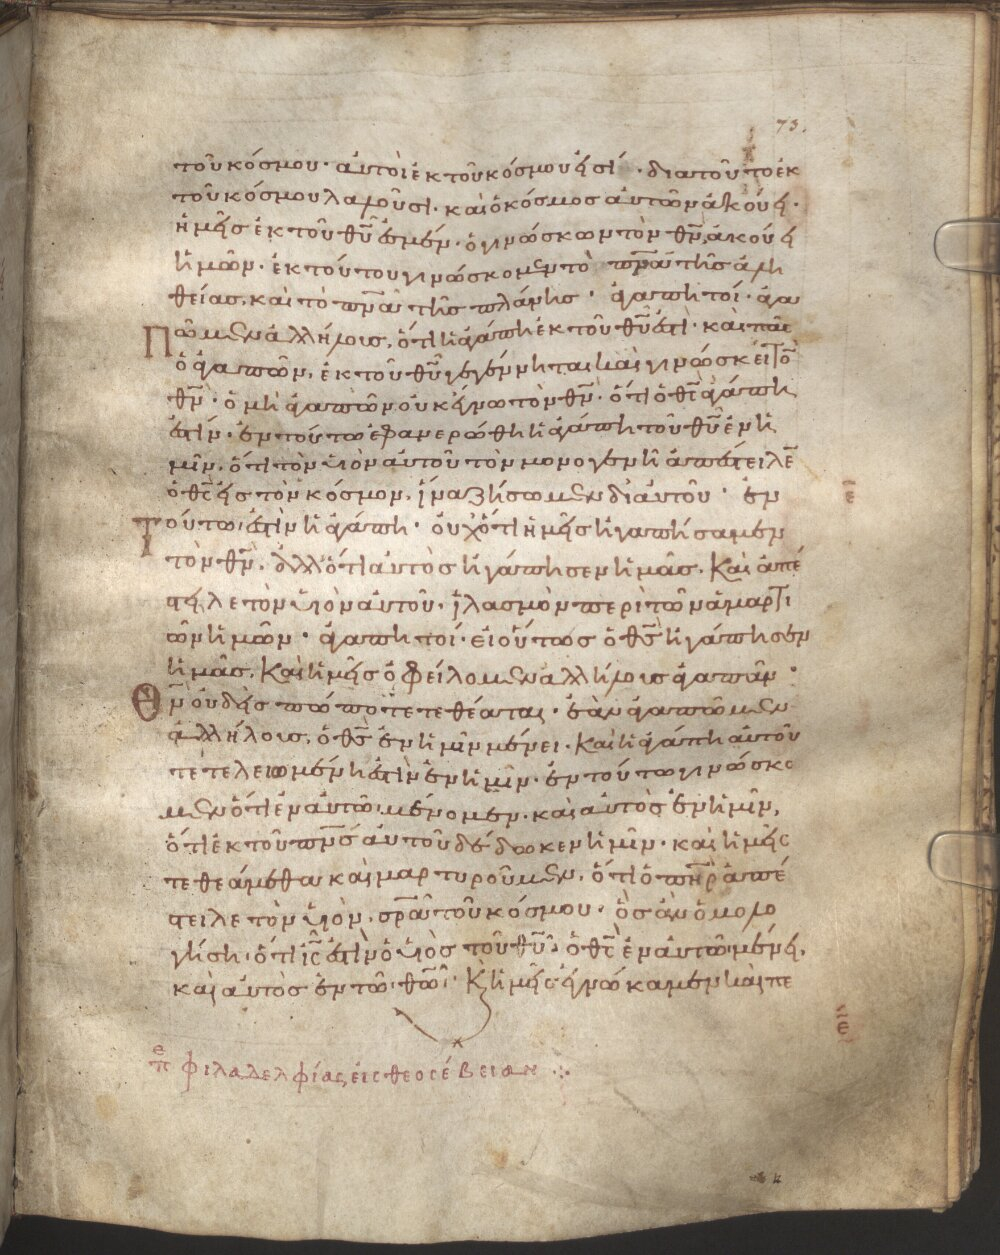 73.
τοῦ κόσμου· αὐτοὶ ἐκ τοῦ κόσμου εἰσί· διὰ τοῦτο ἐκ
τοῦ κόσμου λαλοῦσι· καὶ ὁ κόσμος αὐτῶν ἀκούει·
ἡμεῖς ἐκ τοῦ θῦ ἐσμέν· ὁ γινώσκων τὸν θν, ἀκούει
ἡμῶν· ἐκ τούτου γινώσκομεν τὸ πνα τῆς ἀλη
θείας, καὶ τὸ πνα τῆς πλάνης· ἀγαπητοί· ἀγα
πῶμεν ἀλλήλους, ὅτι ἡ ἀγάπη ἐκ τοῦ θῦ ἐστί· καὶ πᾶς
ὁ ἀγαπῶν, ἐκ τοῦ θῦ γεγέννηται καὶ γινώσκει τὸ
θν· ὁ μὴ ἀγαπῶν οὐκ ἔγνω τὸν θν· ὅτι ὁ θς ἀγάπη
ἐστίν· ἐν τούτω ἐφανερώθη ἡ ἀγάπη τοῦ θῦ ἐν ἡ
μῖν, ὅτι τὸν υἱὸν αὐτοῦ τὸν μονογενῆ ἀπέστειλε
ὁ θς εἰς τὸν κόσμον, ἵνα ζήσωμεν δι αὐτοῦ· ἐν
τούτω ἐστὶν ἡ ἀγάπη· οὐχ ὅτι ἡμεῖς ἠγαπήσαμεν
τὸν θν, ἀλλ ὅτι αὐτὸς ἠγάπησεν ἡμᾶς, καὶ ἀπέ
στειλε τὸν υἱὸν αὐτοῦ· ἱλασμὸν περὶ τῶν ἁμαρτι
ῶν ἡμῶν· ἀγαπητοί· εἰ οὕτως ὁ θς ἠγάπησεν
ἡμᾶς, καὶ ἡμεῖς ὀφείλομεν ἀλλήλους ἀγαπᾶν·
Θν οὐδεὶς πώποτε τεθέαται· ἐὰν ἀγαπῶμεν
ἀλλήλους, ὁ θς ἐν ἡμῖν μένει· καὶ ἡ ἀγάπη αὐτοῦ
τετελειωμένη ἐστὶν ἐν ἡμῖν· ἐν τούτω γινώσκο
μεν ὅτι ἐν αὐτῶ μένομεν· καὶ αὐτὸς ἐν ἡμῖν,
ὅτι ἐκ τοῦ πνς αὐτοῦ δέδωκεν ἡμῖν· καὶ ἡμεῖς
τεθεάμεθα καὶ μαρτυροῦμεν, ὅτι ὁ πηρ ἀπέ
στειλε τὸν υἱὸν, σρα τοῦ κόσμου· ὃς ἂν ὁμολο
γήση· ὅτι ις ἐστὶν ὁ υἱὸς τοῦ θῦ· ὁ θς ἐν αὐτῶ μένει,
καὶ αὐτὸς ἐν τῶ θω· Κ ἡμεῖς ἐγνώκαμεν καὶ πε
επ φιλαδελφίας εἰς θεοσέβειαν